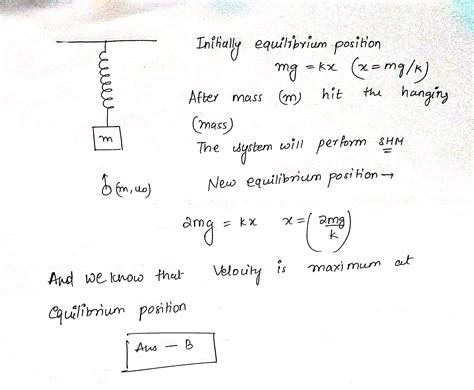 Initially equilibrium position
mg = kx (x = mg/k)
After mass (m) hit the hanging
(mass)
m
The system will perform SHM
(m, u0)
New equilibrium position →
2mg = kx x = (2mg/k)
And we know that Velocity is maximum at
equilibrium position
Ans - B